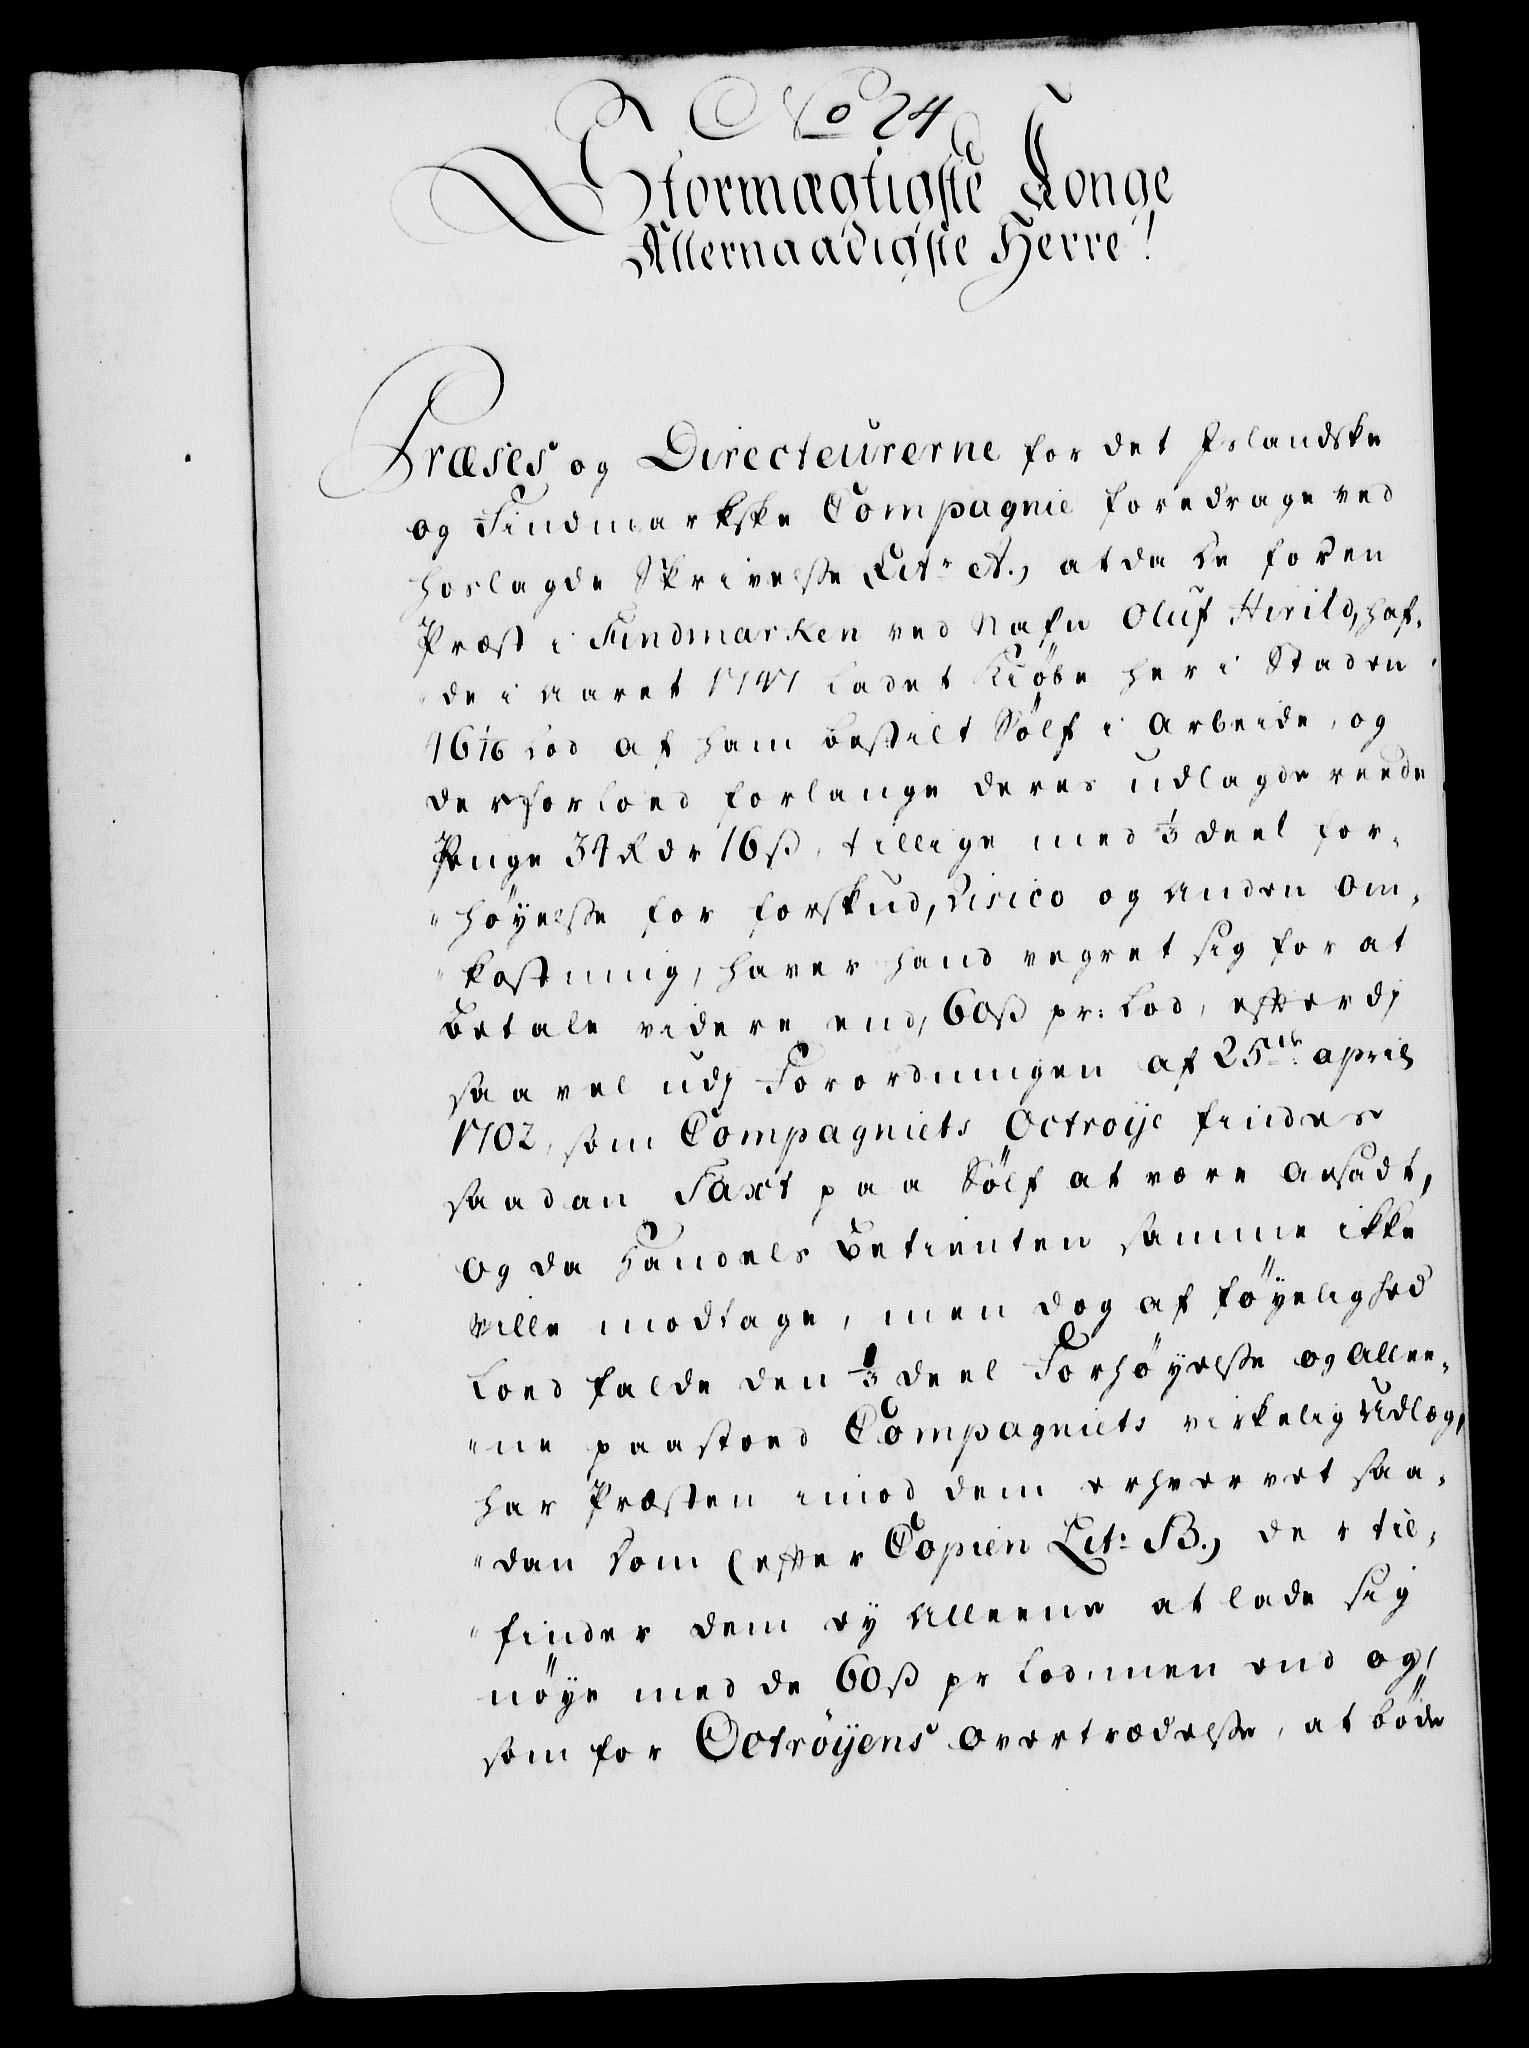 No 24
Stormægtigste Konge
Allernaadigste Herre!
Præses og Directeurerne for det Islandske
og Findmarkske Compagnie foredrage ved
hoslagde Skrivelsse Litr A., at da de for en
Præst i Findmarken ved Nafn Oluf Hirild, haf-
de i Aaret 1741 ladet Kiøbe her i Staden
Lod af ham bestilt Sølf i Arbeide, og
derfor loed forlange deres udlagde reede
Penge 34 Rdr 16 ß, tillige med 1/3 deel for-
"høyelsse for forskud, Risico og anden om-
"kostning, haver hand vegret sig for at
betale videre end, 60 ß pr: Lod, efterdj
saavel udj Forordningen af 25de april
1702, som Compagniets Octroije findes
saadan Taxt paa Sølf at være ansadt,
og da Handels Betienten samme ikke
ville modtage, men dog af føyelighed
loed falde den 1/3 deel Forhøyelsse og allee-
"ne paastoed Compagniets virkelig Udlæg,
har Præsten imod dem erhvervet saa-
"dan Dom (efter Copien Lit: B., der til-
"finder dem ey alleene at lade sig
nøye med de 60 ß pr Lod, men end og,
som for Octroijens overtrædelsse, at bøde